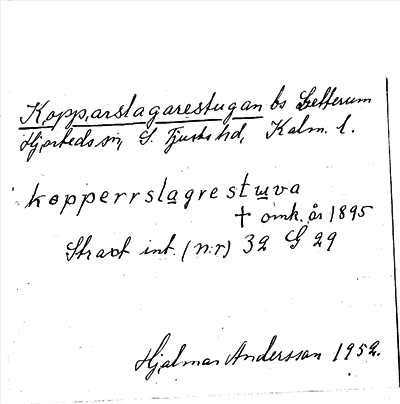 Kopparslagarestugan bs Letterum
Hjorteds sn, S. Tjusts hd, Kalm. l.
kopperrslagrestuva
† omk. år 1895
Strax int. (n:r) 32 G 29
Hjalmar Andersson 1952.